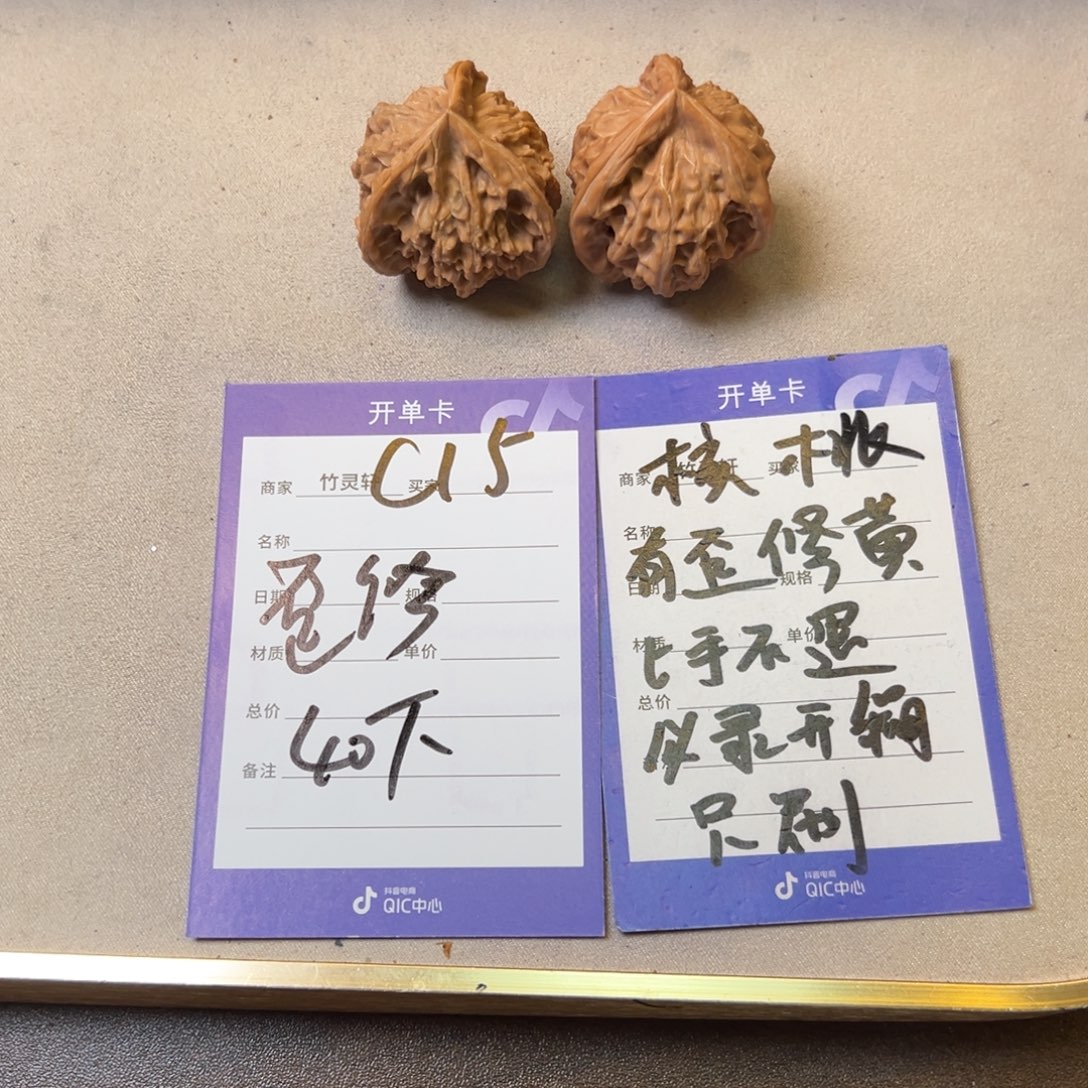 开单卡
C15
商家 竹灵轩 买家
名称
包修
日期 规格
材质 单价
总价
40下
备注
抖音电商
QIC中心
开单卡
核桃
商家 竹 轩 买家
名称
有歪修黄
日期 规格
上手不退
材质 单价
总价
以录开编
只刷
抖音电商
QIC中心